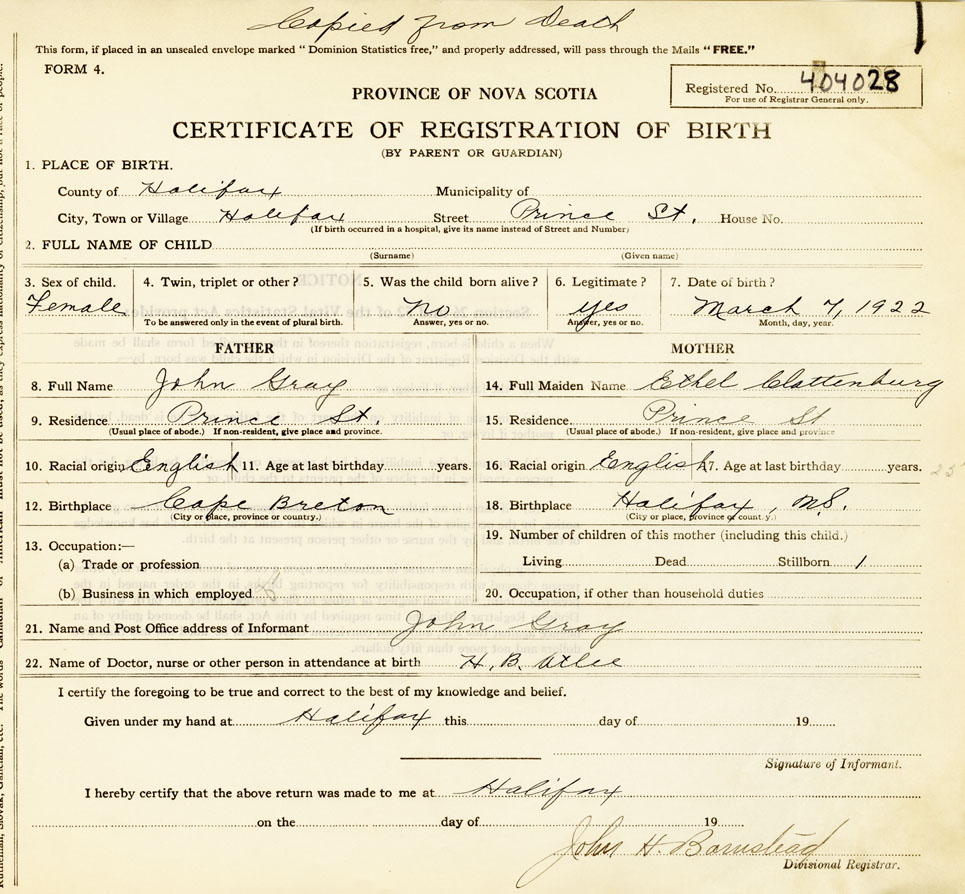 Copied from Death
This form, if placed in an unsealed envelope marked "Dominion Statistics free," and properly addressed, will pass through the Mails "FREE."
FORM 4.
Registered No. 404028
For use of Registrar General only.
PROVINCE OF NOVA SCOTIA
CERTIFICATE OF REGISTRATION OF BIRTH
(BY PARENT OR GUARDIAN)
1. PLACE OF BIRTH.
County of Halifax Municipality of
City, Town or Village Halifax Street Prince St. House No.
(If birth occurred in a hospital, give its name instead of Street and Number)
2. FULL NAME OF CHILD
(Surname) (Given name)
3. Sex of child. 4. Twin, triplet or other? 5. Was the child born alive? 6. Legitimate? 7. Date of birth?
Female No yes March 7, 1922
To be answered only in the event of plural birth. Answer, yes or no. Answer, yes or no. Month, day, year.
FATHER MOTHER
8. Full Name John Gray 14. Full Maiden Name Ethel Clattenburg
9. Residence Prince St. 15. Residence Prince St
(Usual place of abode.) If non-resident, give place and province. (Usual place of abode.) If non-resident, give place and province
10. Racial origin English 11. Age at last birthday years. 16. Racial origin English 17. Age at last birthday years.
12. Birthplace Cape Breton 18. Birthplace Halifax, N.S.
(City or place, province or country.) (City or place, province or country.)
13. Occupation:— 19. Number of children of this mother (including this child.)
(a) Trade or profession Living Dead Stillborn 1
(b) Business in which employed 20. Occupation, if other than household duties
21. Name and Post Office address of Informant John Gray
22. Name of Doctor, nurse or other person in attendance at birth H. B. Atlee
I certify the foregoing to be true and correct to the best of my knowledge and belief.
Given under my hand at Halifax this day of 19
Signature of Informant.
I hereby certify that the above return was made to me at Halifax
on the day of 19
John H. Barnstead
Divisional Registrar.